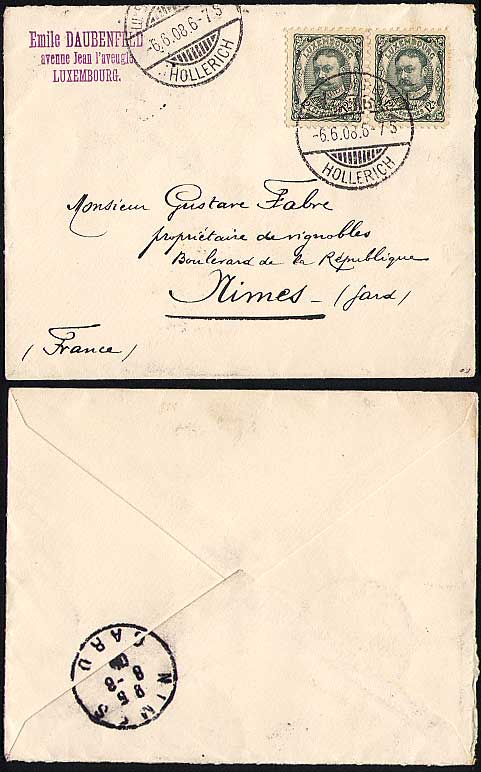 Emile DAUBENFELD
avenue Jean l'aveugle
LUXEMBOURG.
-6.6.08.6-7S
HOLLERICH
LUXEMBOURG
LUXEMBOURG
-6.6.08.6-7S
HOLLERICH
Monsieur Gustave Fabre
propriétaire de vignobles
Boulevard de la République
Nîmes - (Gard)
(France)
NIMES
GARD